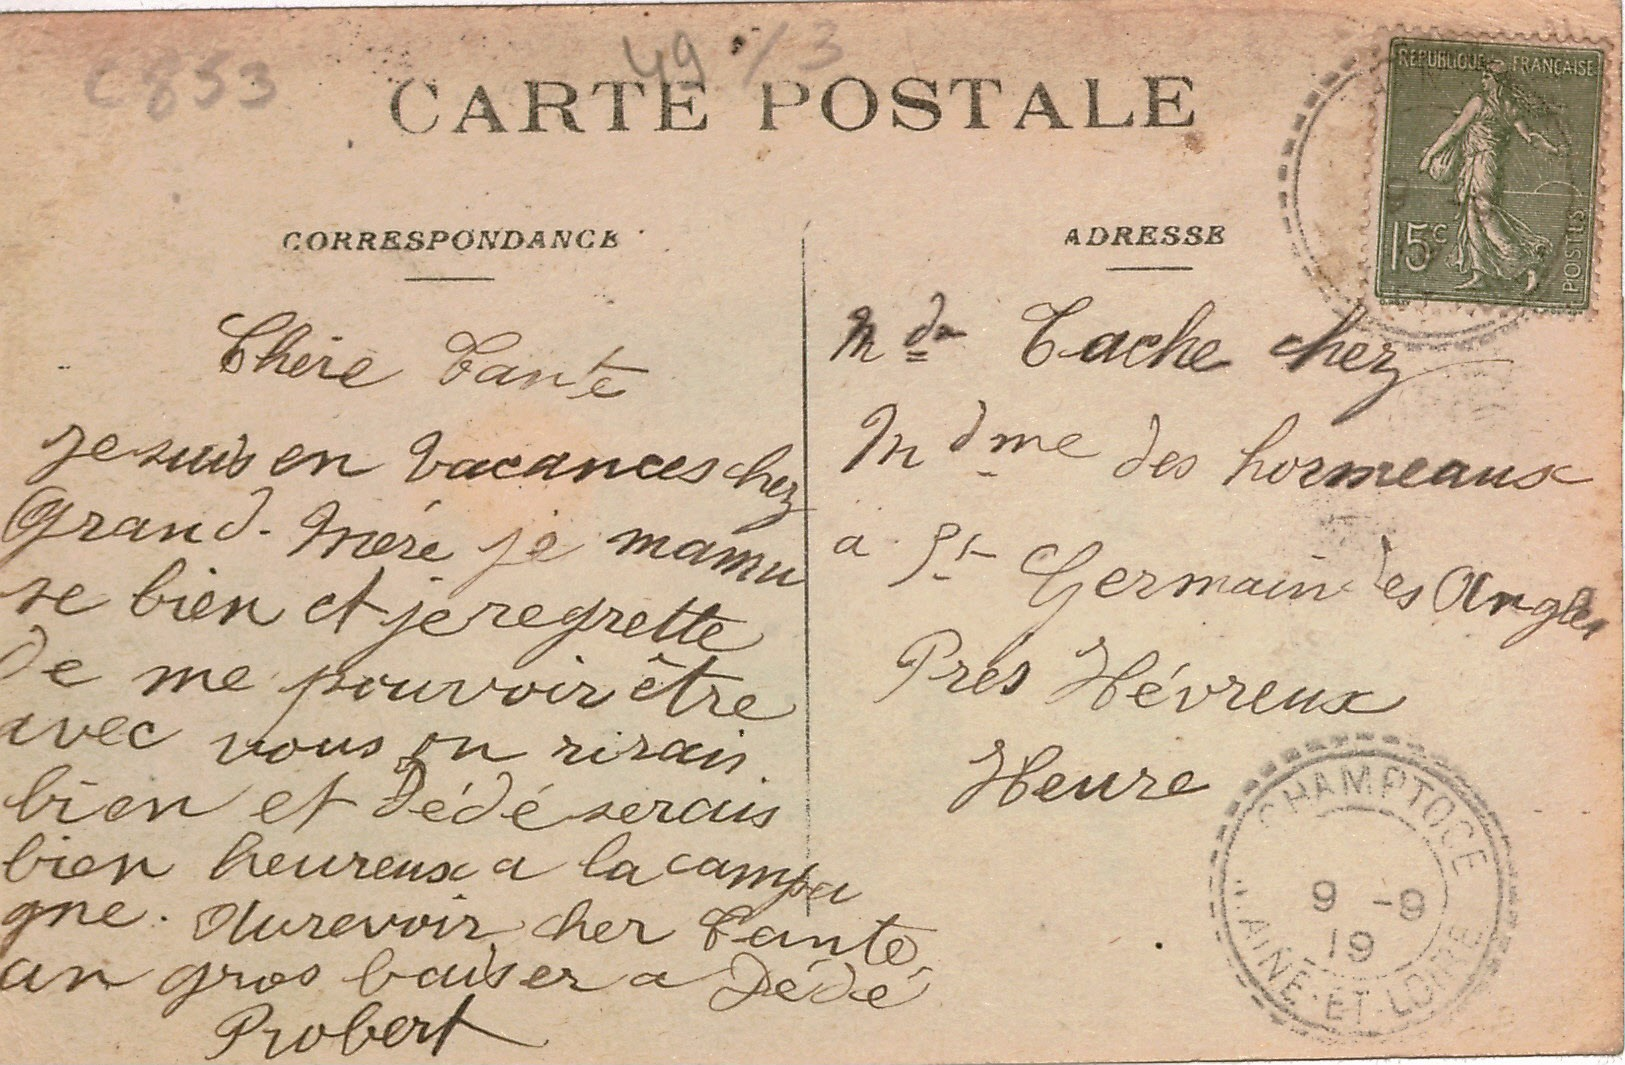 C853
49 / 3
CARTE POSTALE
REPUBLIQUE FRANÇAISE
15c
POSTES
CORRESPONDANCE
ADRESSE
Chère Tante
je suis en vacances chez
Grand-Mère je mamu
se bien et je regrette
de me pouvoir être
avec vous on rirais
bien et Dédé serais
bien heureux a la campa
gne. Aurevoir cher Tante,
un gros baiser a Dédé
Robert
Mde Tache chez
Mdme des hormeaux
a St Germain les Angles
Près Hévreux
Heure
CHAMPTOCE
9 -9
19
MAINE-ET-LOIRE